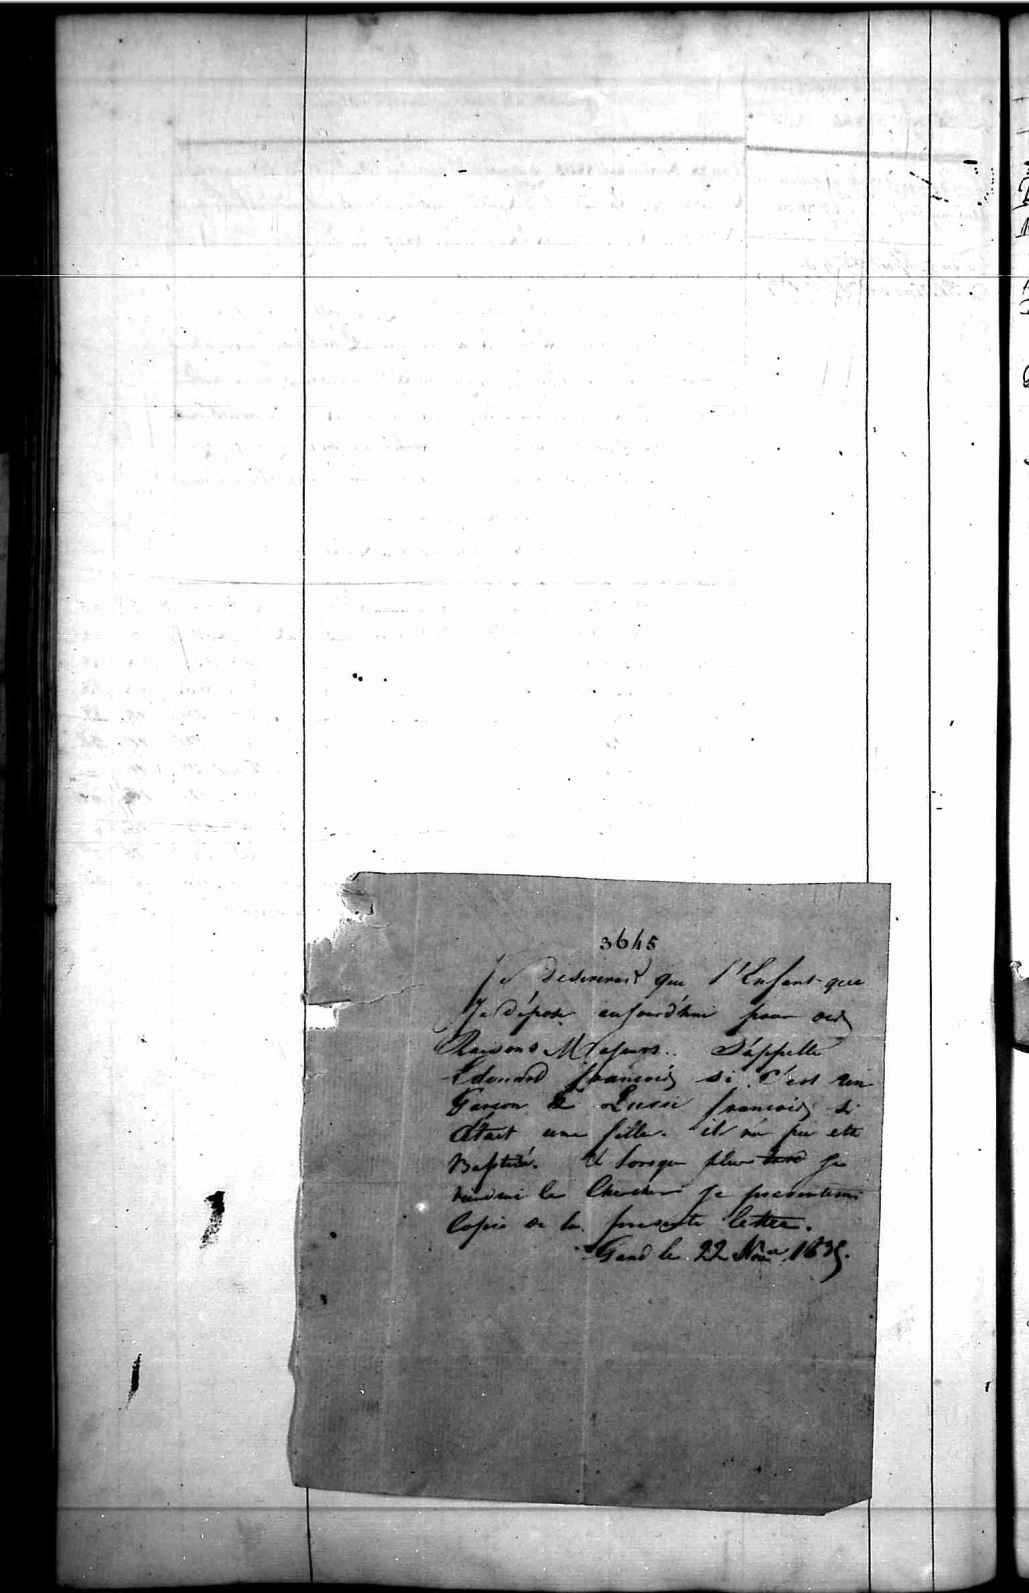 3645
Je desirerais que l'Enfant que
Je dépose aujourd'hui pour des
Raisons Majeurs.. S'appelle
Edouard françois si c'est un
Garçon & françois si
c'était une fille. il n'a pu etre
Baptisé. & lorsque plus tard Je
viendrai le Chercher Je presenterai
Copie de la presente lettre.
Gand le 22 1835.